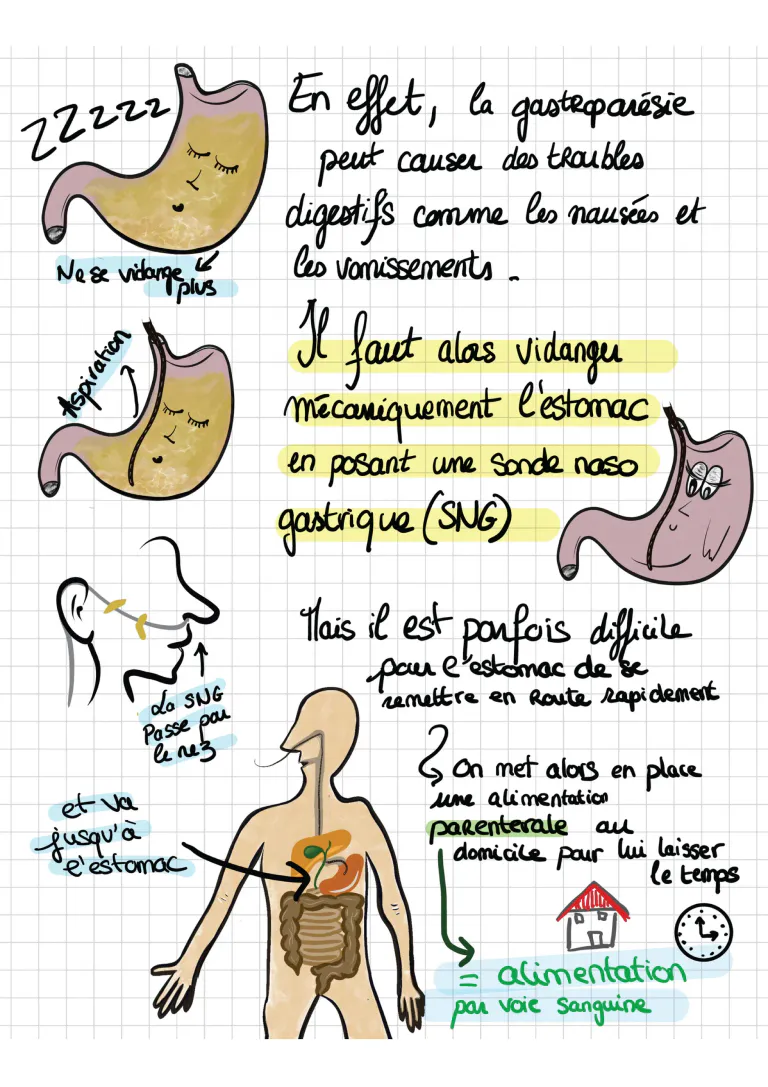 ZZZZZ
En effet, la gastroparésie
peut causer des troubles
digestifs comme les nausées et
les vomissements.
Ne se vidange
plus
Aspiration
Il faut alors vidanger
mécaniquement l'estomac
en posant une sonde naso
gastrique (SNG)
Mais il est parfois difficile
pour l'estomac de se
remettre en Route rapidement
La SNG
Passe par
le nez
On met alors en place
une alimentation
parenterale au
domicile pour lui laisser
le temps
et va
jusqu'à
l'estomac
= alimentation
par voie sanguine